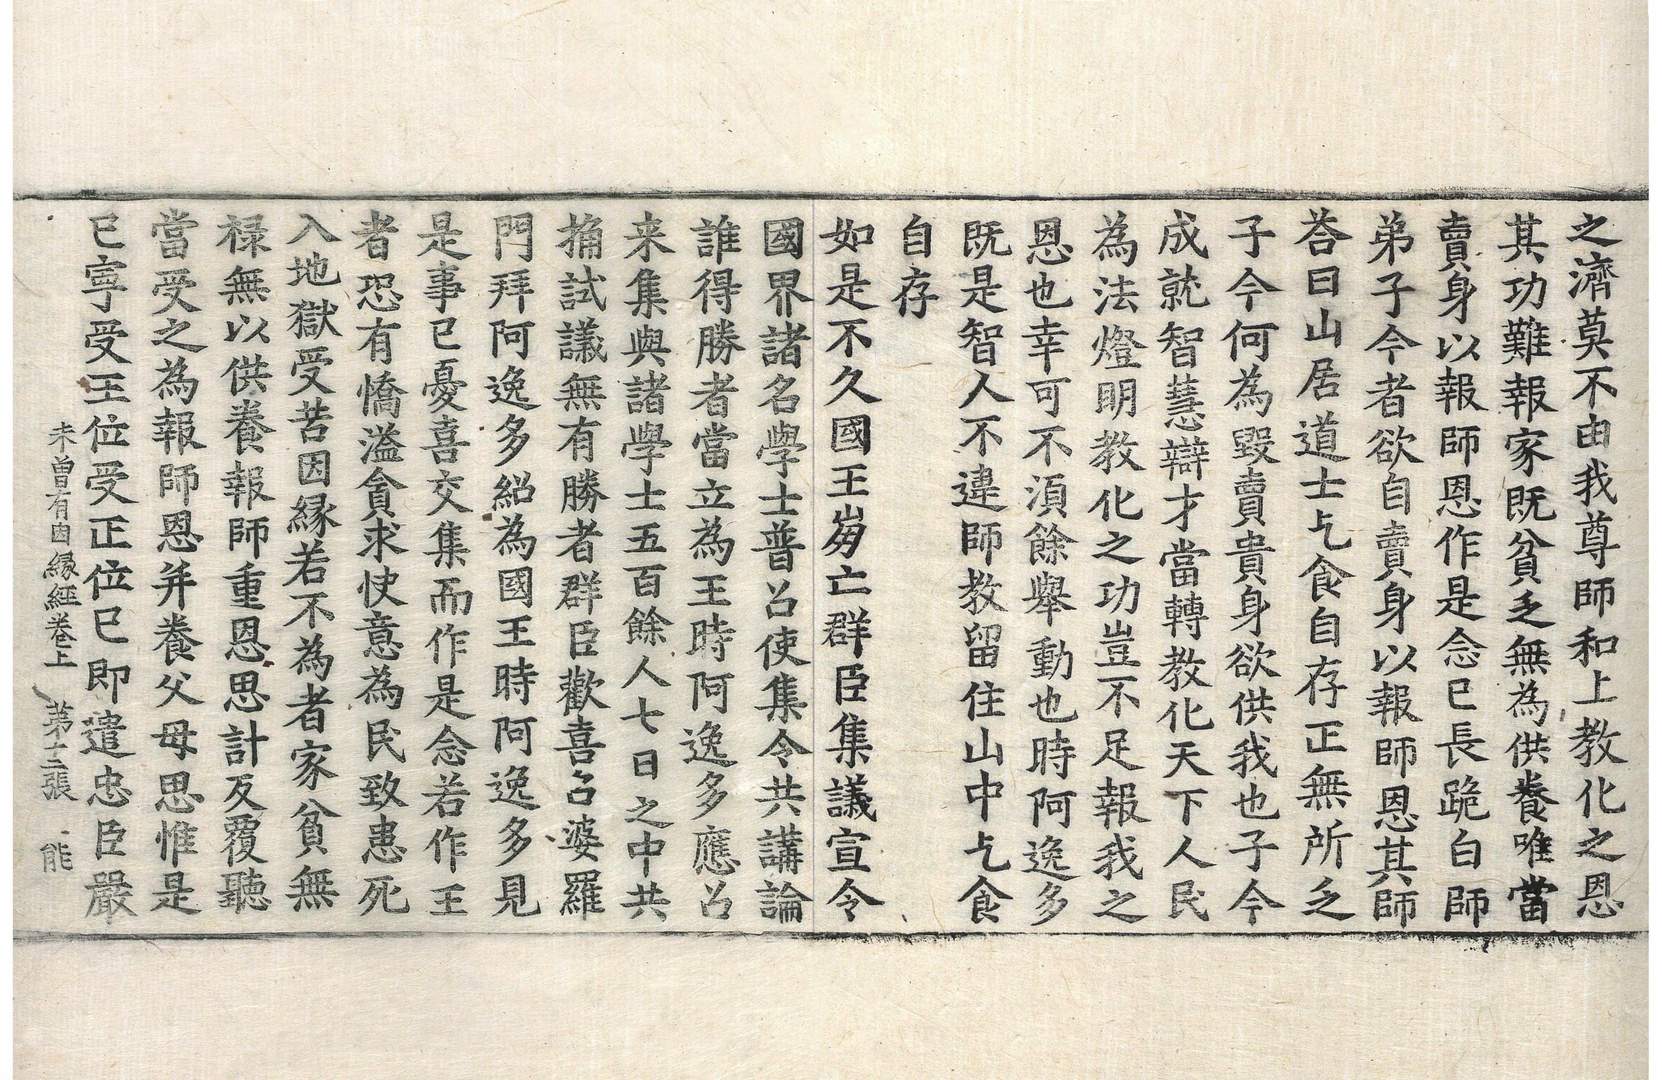 之濟莫不由我尊師和上教化之恩
其功難報家既貧乏無為供養唯當
賣身以報師恩作是念已長跪白師
弟子今者欲自賣身以報師恩其師
荅曰山居道士乞食自存正無所乏
子今何為毀賣貴身欲供我也子今
成就智慧辯才當轉教化天下人民
為法燈明教化之功豈不足報我之
恩也幸可不須餘舉動也時阿逸多
既是智人不違師教留住山中乞食
自存
如是不久國王崩亡群臣集議宣令
國界諸名學士普召使集令共講論
誰得勝者當立為王時阿逸多應召
来集與諸學士五百餘人七日之中共
捔試議無有勝者群臣歡喜召婆羅
門拜阿逸多紹為國王時阿逸多見
是事已憂喜交集而作是念若作王
者恐有憍溢貪求快意為民致患死
入地獄受苦因縁若不為者家貧無
禄無以供養報師重恩思計反覆聽
當受之為報師恩并養父母思惟是
已寧受王位受王位已即遣忠臣嚴
未曽有因縁經巻上　第十二張　能